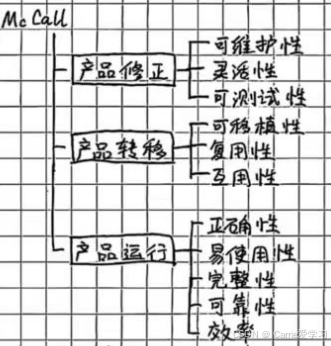 McCall
可维护性
产品修正
灵活性
可测试性
可移植性
产品转移
复用性
互用性
正确性
产品运行
易使用性
完整性
可靠性
效率
CSDN @Carrie爱学习